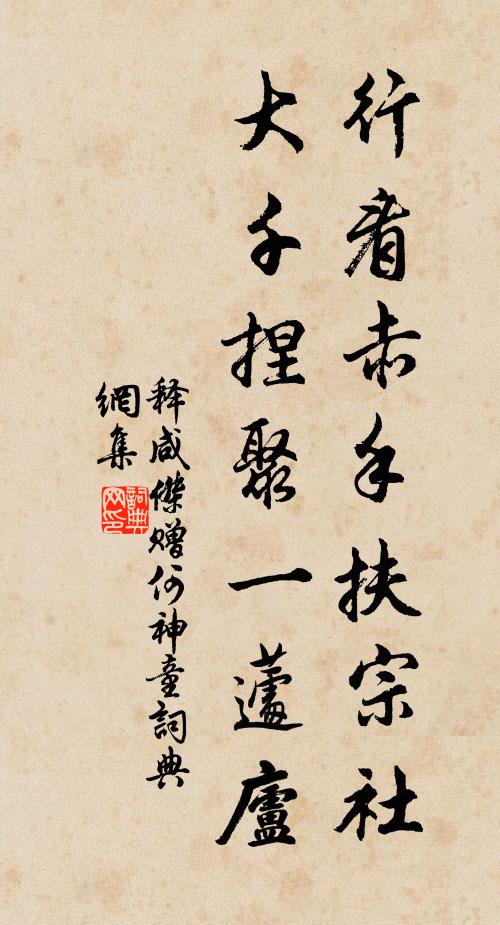 行看赤手扶宗社
大千捏聚一蘧廬
释咸傑赠何神童詞典
網集
詞典网印